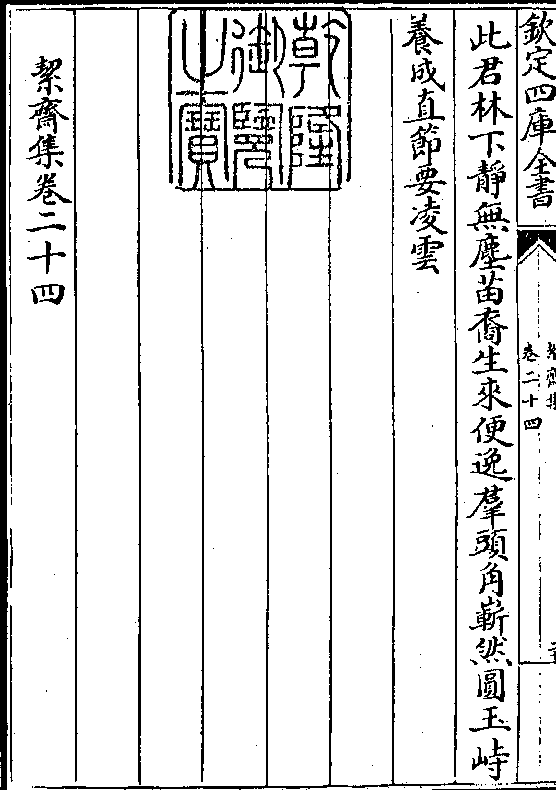 欽定四庫全書
絜齋集
卷二十四
此君林下靜無塵苗裔生來便逸羣頭角嶄然圓玉峙
養成直節要凌雲
乾隆御覽之寶
絜齋集卷二十四